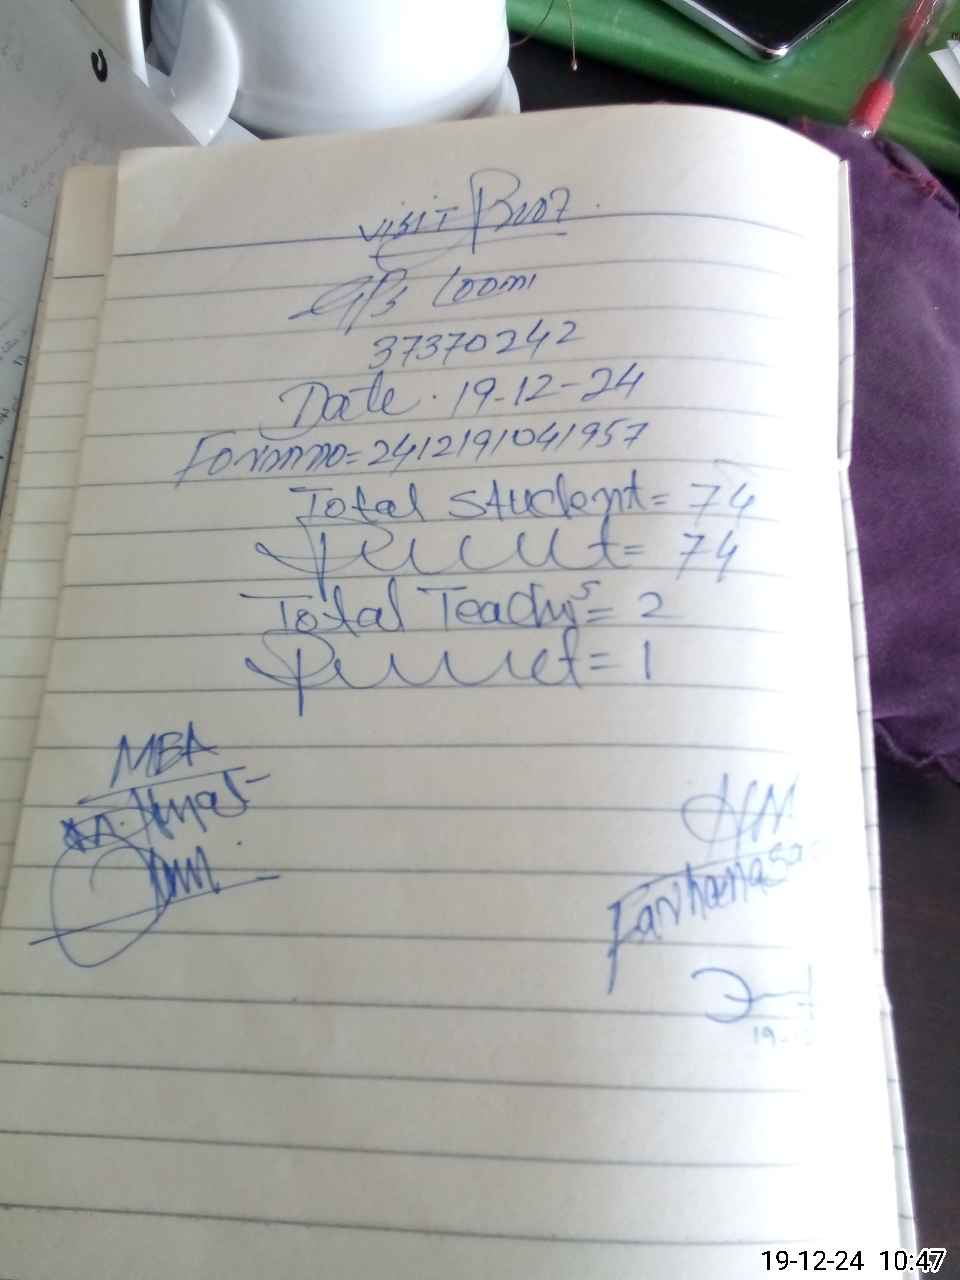 Visit Proof
GPS Loomi
37370242
Date. 19-12-24
Formno=2412191041957
Total Student= 74
Present= 74
Total Teachers= 2
Present= 1
MBA
HM
Farhana
19-12-24 10:47